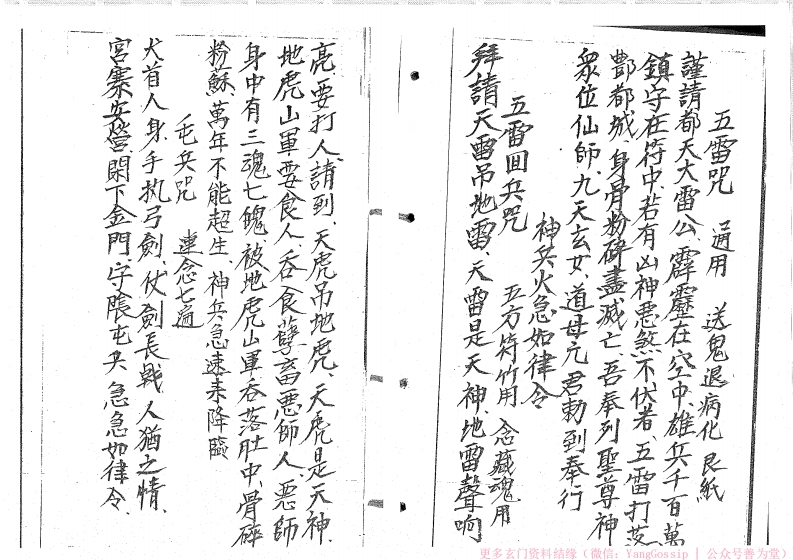 五雷咒 通用 送鬼退病化良紙
謹請都天大雷公、霹靂在空中、雄兵千百萬
鎮守在符中、若有凶神惡煞不伏者、五雷打落
酆都城、身骨粉碎盡滅亡、吾奉列聖尊神
眾位仙師、九天玄女、道母元君勅到奉行
神兵火急如律令
五雷回兵咒 五方符竹用 含藏魂用
拜請天雷吊地雷、天雷是天神、地雷聲响
亮要打人、請到、天虎吊地虎、天虎是天神、
地虎山軍要食人、吞食孽畜惡師人、惡師
身中有三魂七魄、被地虎山軍吞落肚中、骨碎
粉蘇萬年不能超生、神兵急速來降臨
屯兵咒 連念七遍
犬首人身、手执弓劍、仗劍長戟、人猶之情、
宮寨安營、閑下金門、守隘屯兵、急急如律令、
更多玄门资料结缘（微信：YangGossip | 公众号善为堂）